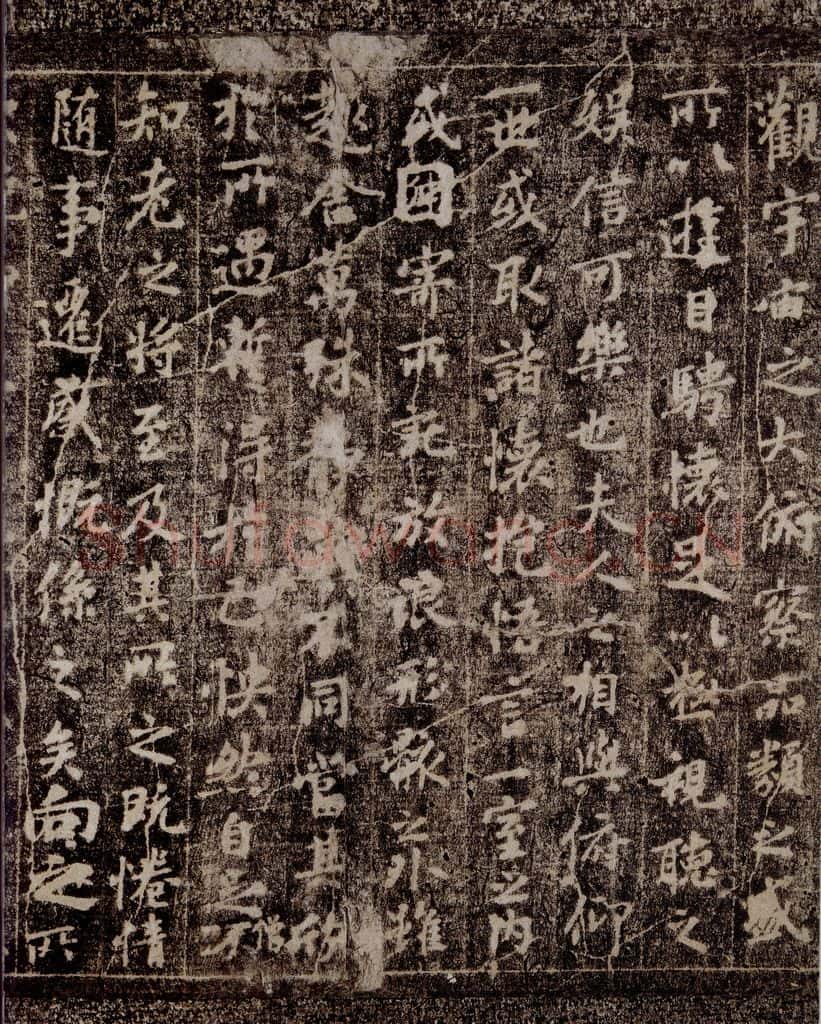 觀宇宙之大俯察品類之盛
所以遊目騁懷足以極視聽之
娛信可樂也夫人之相與俯仰
一世或取諸懷抱悟言一室之內
或因寄所託放浪形骸之外雖
趣舍萬殊靜躁不同當其欣
於所遇暫得於己怏然自足不
僧
知老之將至及其所之既惓情
隨事遷感慨係之矣向之所
Shufawang.CN